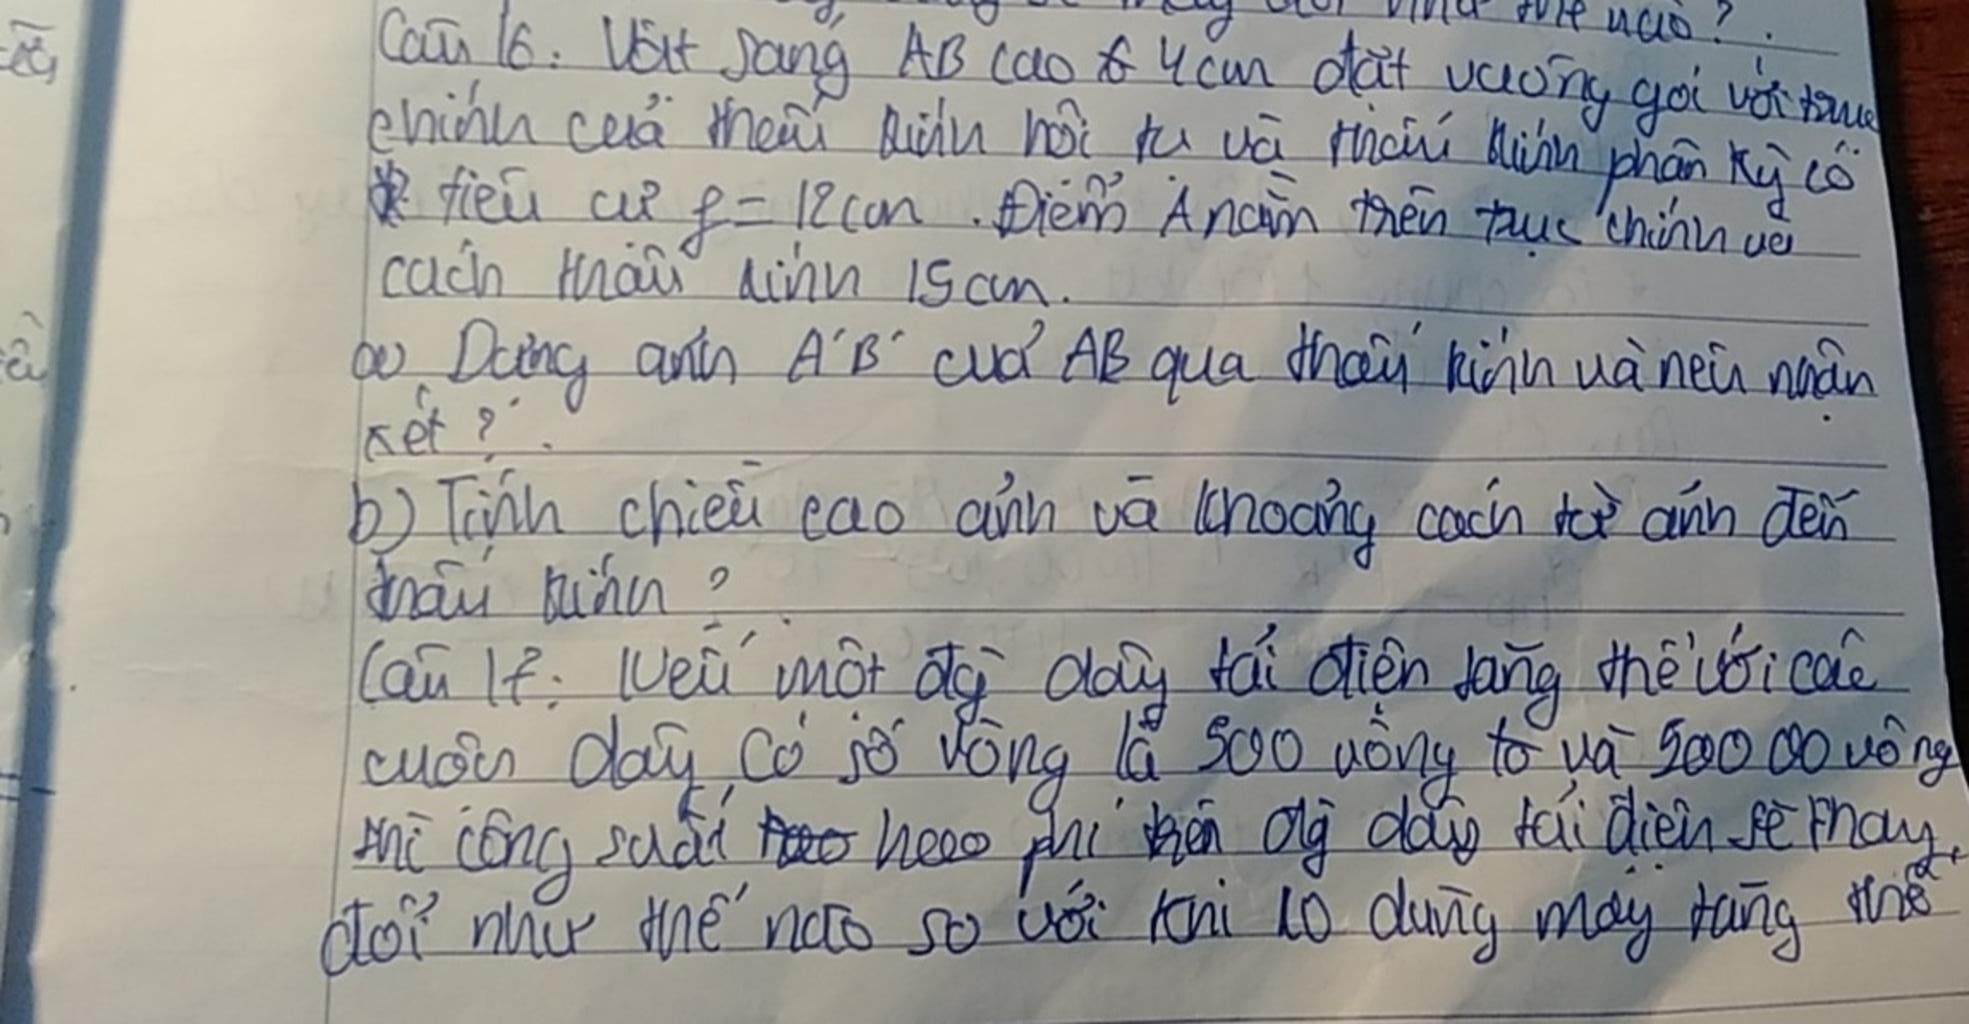 nào?.
Câu 16: Vật sáng AB cao 4cm đặt vuông gói với trục
chính của thấu kính hội tụ và thấu kính phân kỳ có
tiêu cự f = 12cm. Điểm A nằm trên trục chính và
cách thấu kính 15cm.
a) Dựng ảnh A'B' của AB qua thấu kính và nêu nhận
xét?.
b) Tính chiều cao ảnh và khoảng cách từ ảnh đến
thấu kính?
Câu 17: Nếu một đg dây tải điện tăng thế với các
cuộn dây có số vòng là 500 vòng tờ và 50000 vòng
thì công suất heo phí trên đg dây tải điện sẽ thay
đổi như thế nào so với khi ko dùng máy tăng thế